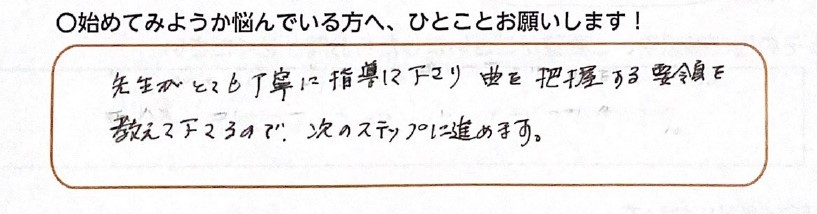 〇始めてみようか悩んでいる方へ、ひとことお願いします！
先生がとても丁寧に指導して下さり 曲を把握する要領を
教えて下さるので、次のステップに進めます。